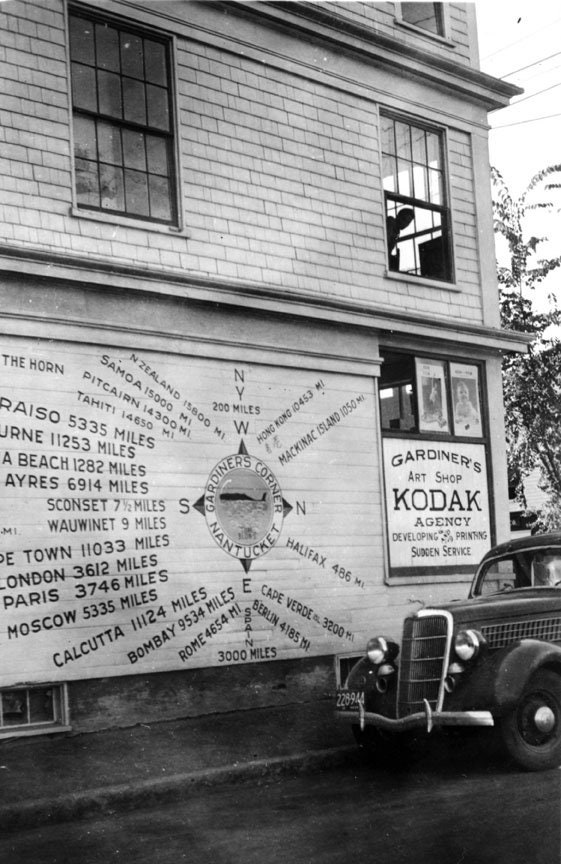 THE HORN
N. ZEALAND 15800 MI.
SAMOA 15000 MI.
PITCAIRN 14300 MI.
TAHITI 14650 MI.
RAISO 5335 MILES
URNE 11253 MILES
A BEACH 1282 MILES
AYRES 6914 MILES
SCONSET 7½ MILES
WAUWINET 9 MILES
MI.
PE TOWN 11033 MILES
LONDON 3612 MILES
PARIS 3746 MILES
MOSCOW 5335 MILES
CALCUTTA 11124 MILES
BOMBAY 9534 MILES
ROME 4654 MI.
N Y
200 MILES
W
HONG KONG 10453 MI.
MACKINAC ISLAND 1050 MI.
S
GARDINER'S CORNER
NANTUCKET
N
HALIFAX 486 MI.
E
SPAIN
3000 MILES
CAPE VERDE IS. 3200 MI.
BERLIN 4185 MI.
GARDINER'S
ART SHOP
KODAK
AGENCY
DEVELOPING PRINTING
SUDDEN SERVICE